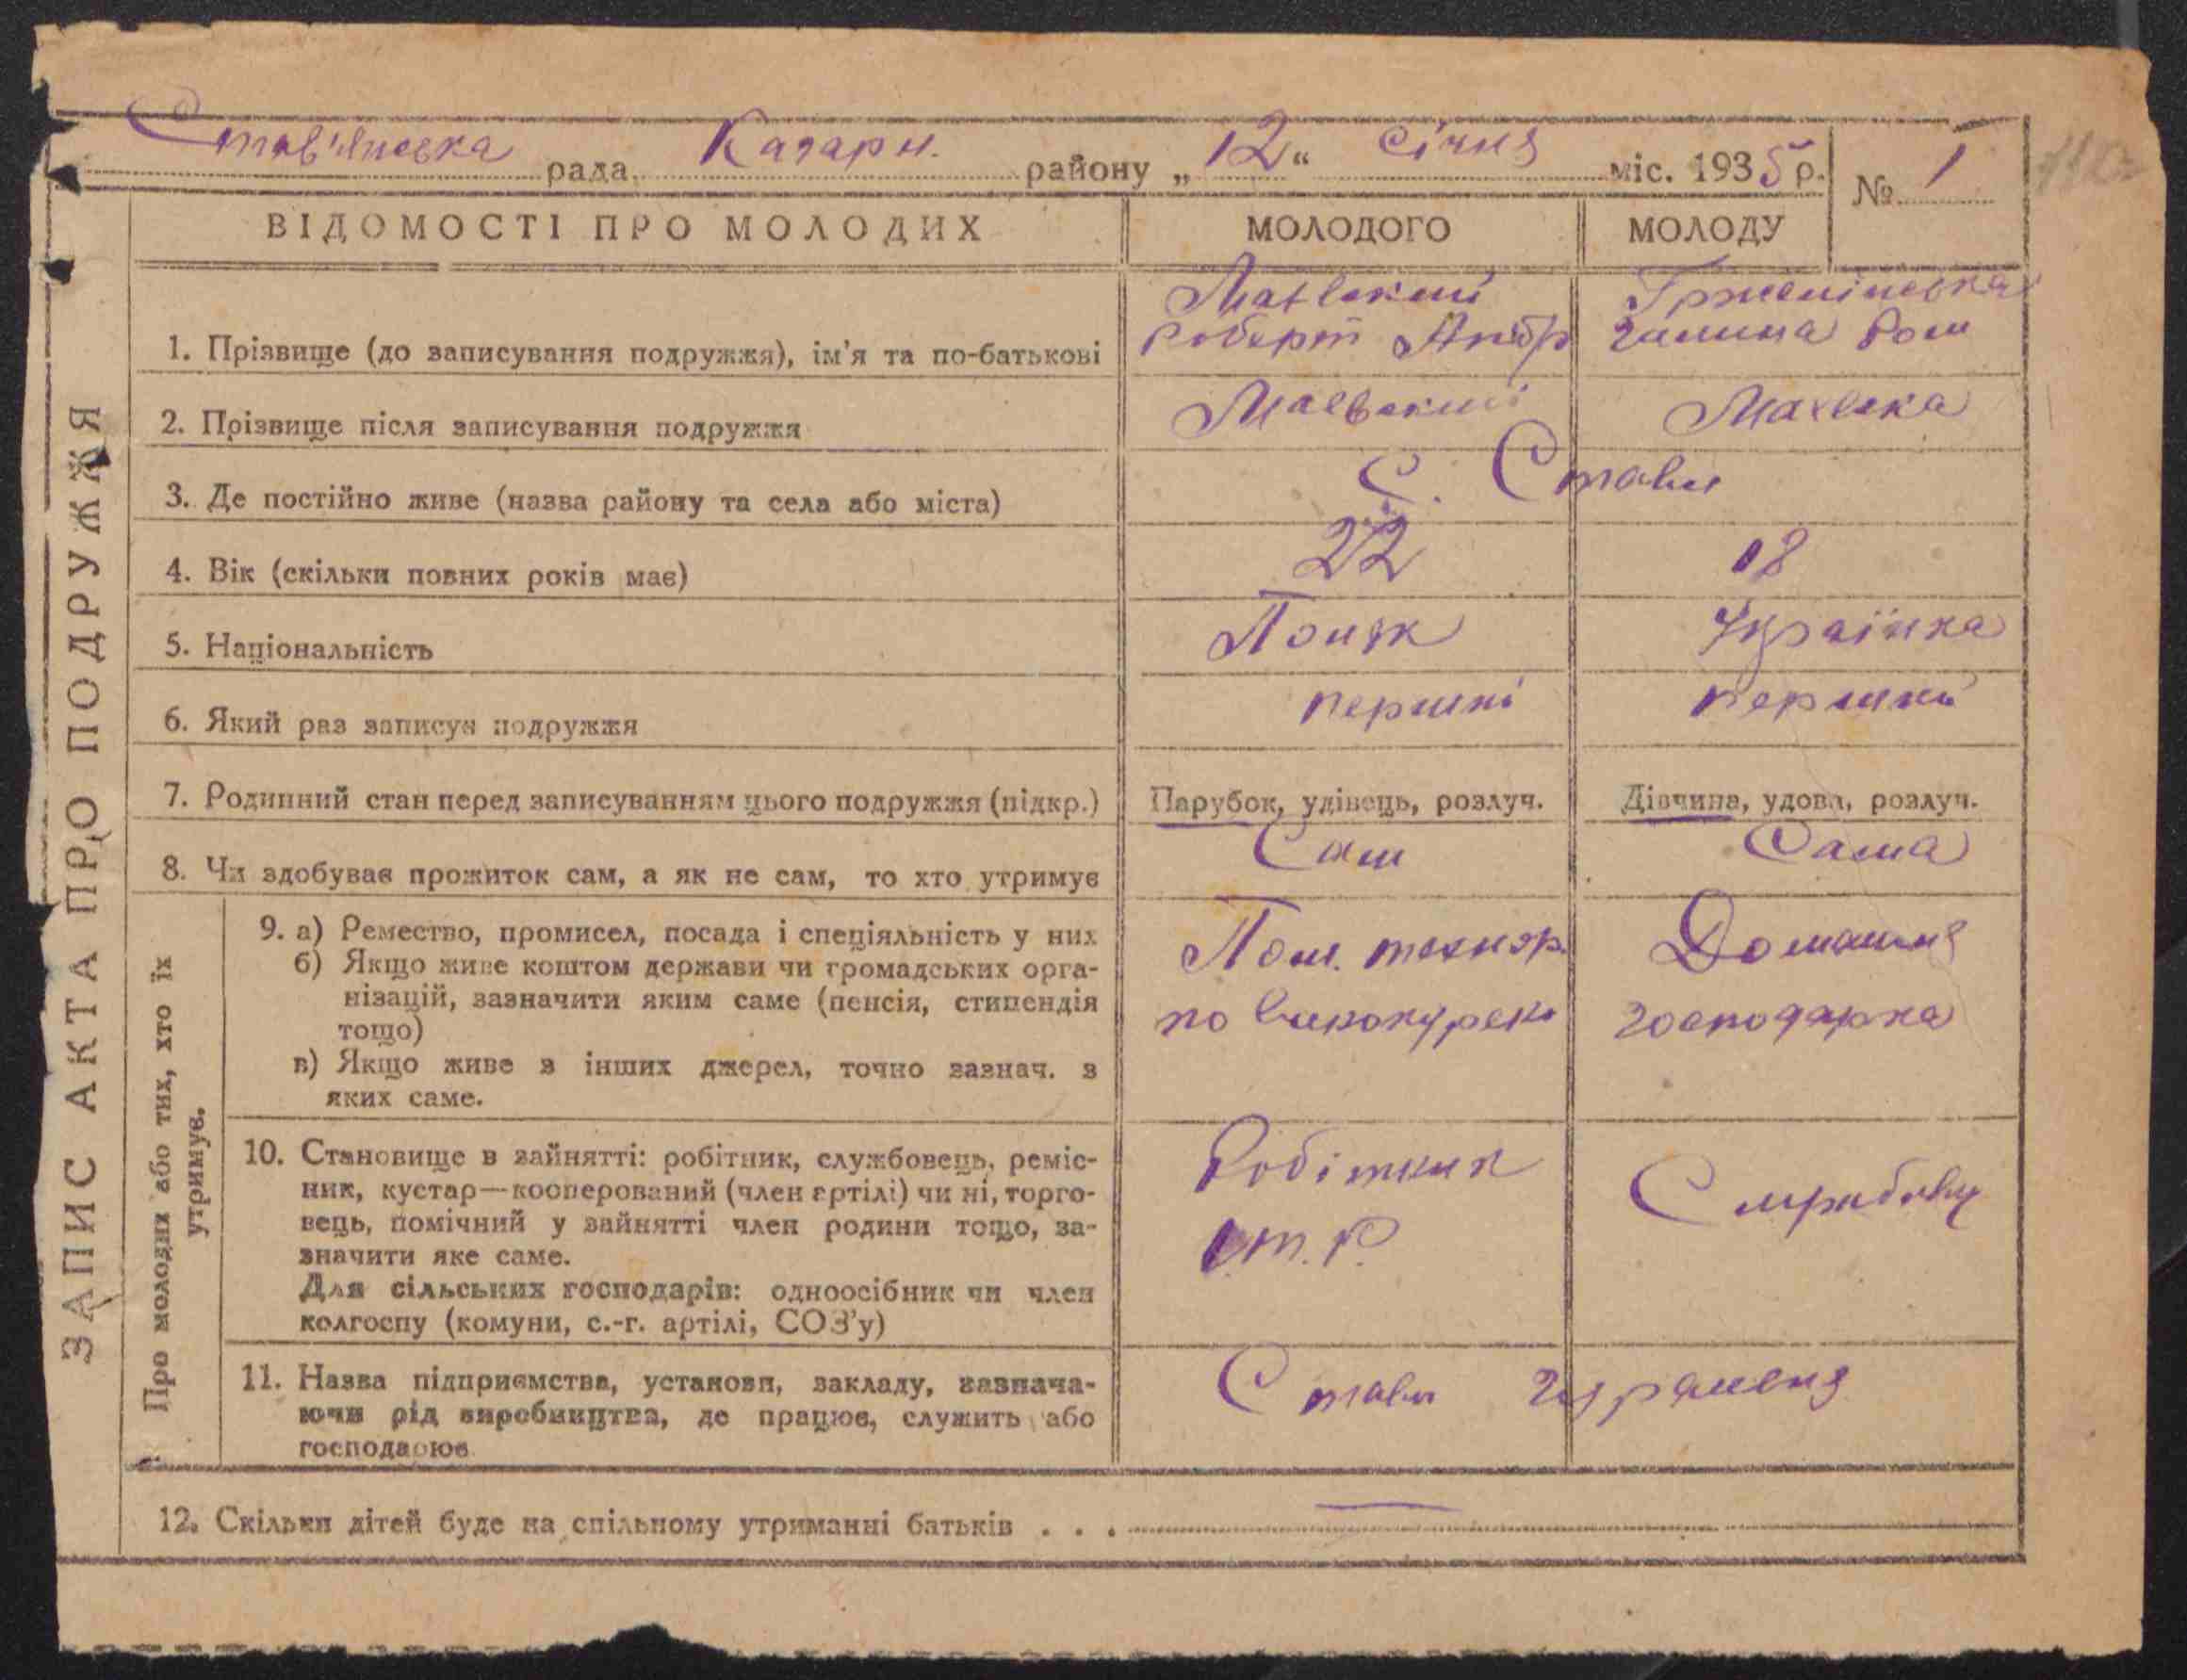 Став'янська рада Кагарл. району „12“ січня міс. 1935 р. № 1
ВІДОМОСТІ ПРО МОЛОДИХ МОЛОДОГО МОЛОДУ
ЗАПИС АКТА ПРО ПОДРУЖЖЯ
Маєвский
1. Прізвище (до записування подружжя), ім'я та по-батькові Роберт Андр Галина Ром
2. Прізвище після записування подружжя Маєвский Маєвска
3. Де постійно живе (назва району та села або міста) С. Стави
4. Вік (скільки повних років має) 22 18
5. Національність Поляк Українка
6. Який раз записує подружжя перший перший
7. Родинний стан перед записуванням цього подружжя (підкр.) Парубок, удівець, розлуч. Дівчина, удова, розлуч.
8. Чи здобуває прожиток сам, а як не сам, то хто утримує Сам Сама
Про молодих або тих, хто їх утримує.
9. а) Ремество, промисел, посада і спеціяльність у них
б) Якщо живе коштом держави чи громадських орга-
нізацій, зазначити яким саме (пенсія, стипендія
тощо)
в) Якщо живе з інших джерел, точно зазнач. з
яких саме.
Пом.
по
Домашня
господарка
10. Становище в зайнятті: робітник, службовець, реміс-
ник, кустар—кооперований (член артілі) чи ні, торго-
вець, помічний у зайнятті член родини тощо, за-
значити яке саме.
Для сільських господарів: одноосібник чи член
колгоспу (комуни, с.-г. артілі, СОЗ'у)
Робітник
Службовц
11. Назва підприємства, установи, закладу, зазнача-
ючи рід виробництва, де працює, служить або
господарює
Стави Гуральня
12. Скільки дітей буде на спільному утриманні батьків . . . —